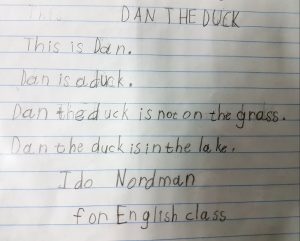 This DAN THE DUCK
This is Dan.
Dan is a duck.
Dan the duck is not on the grass.
Dan the duck is in the lake.
Ido Nordman
for English class